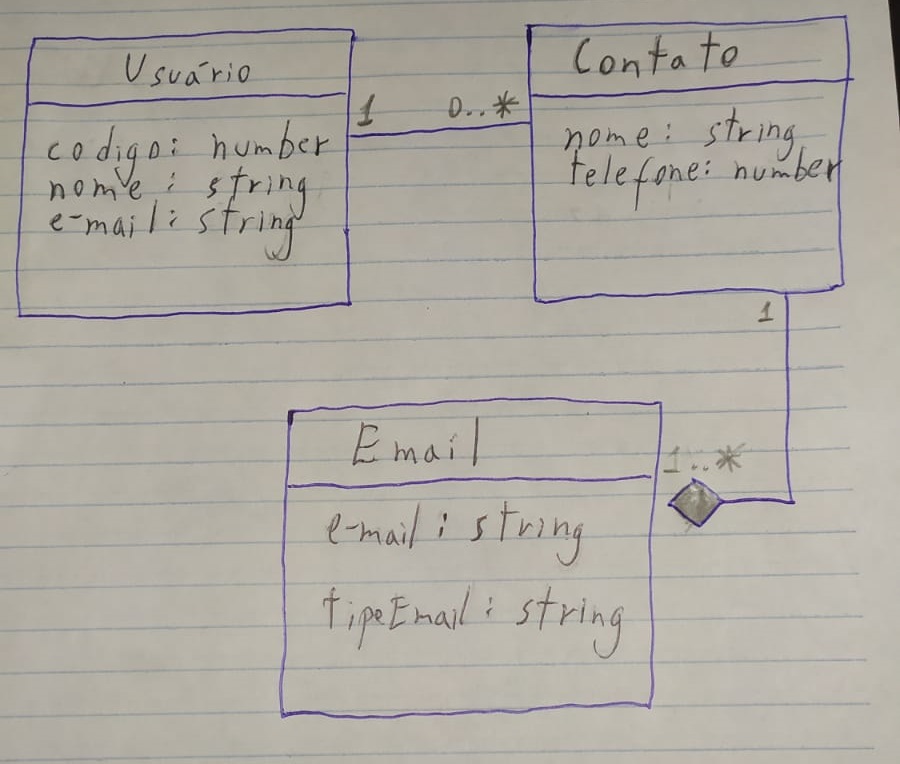 Usuário
codigo: number
nome: string
e-mail: string
1 0..*
Contato
nome: string
telefone: number
1
Email
e-mail: string
tipeEmail: string
1..*